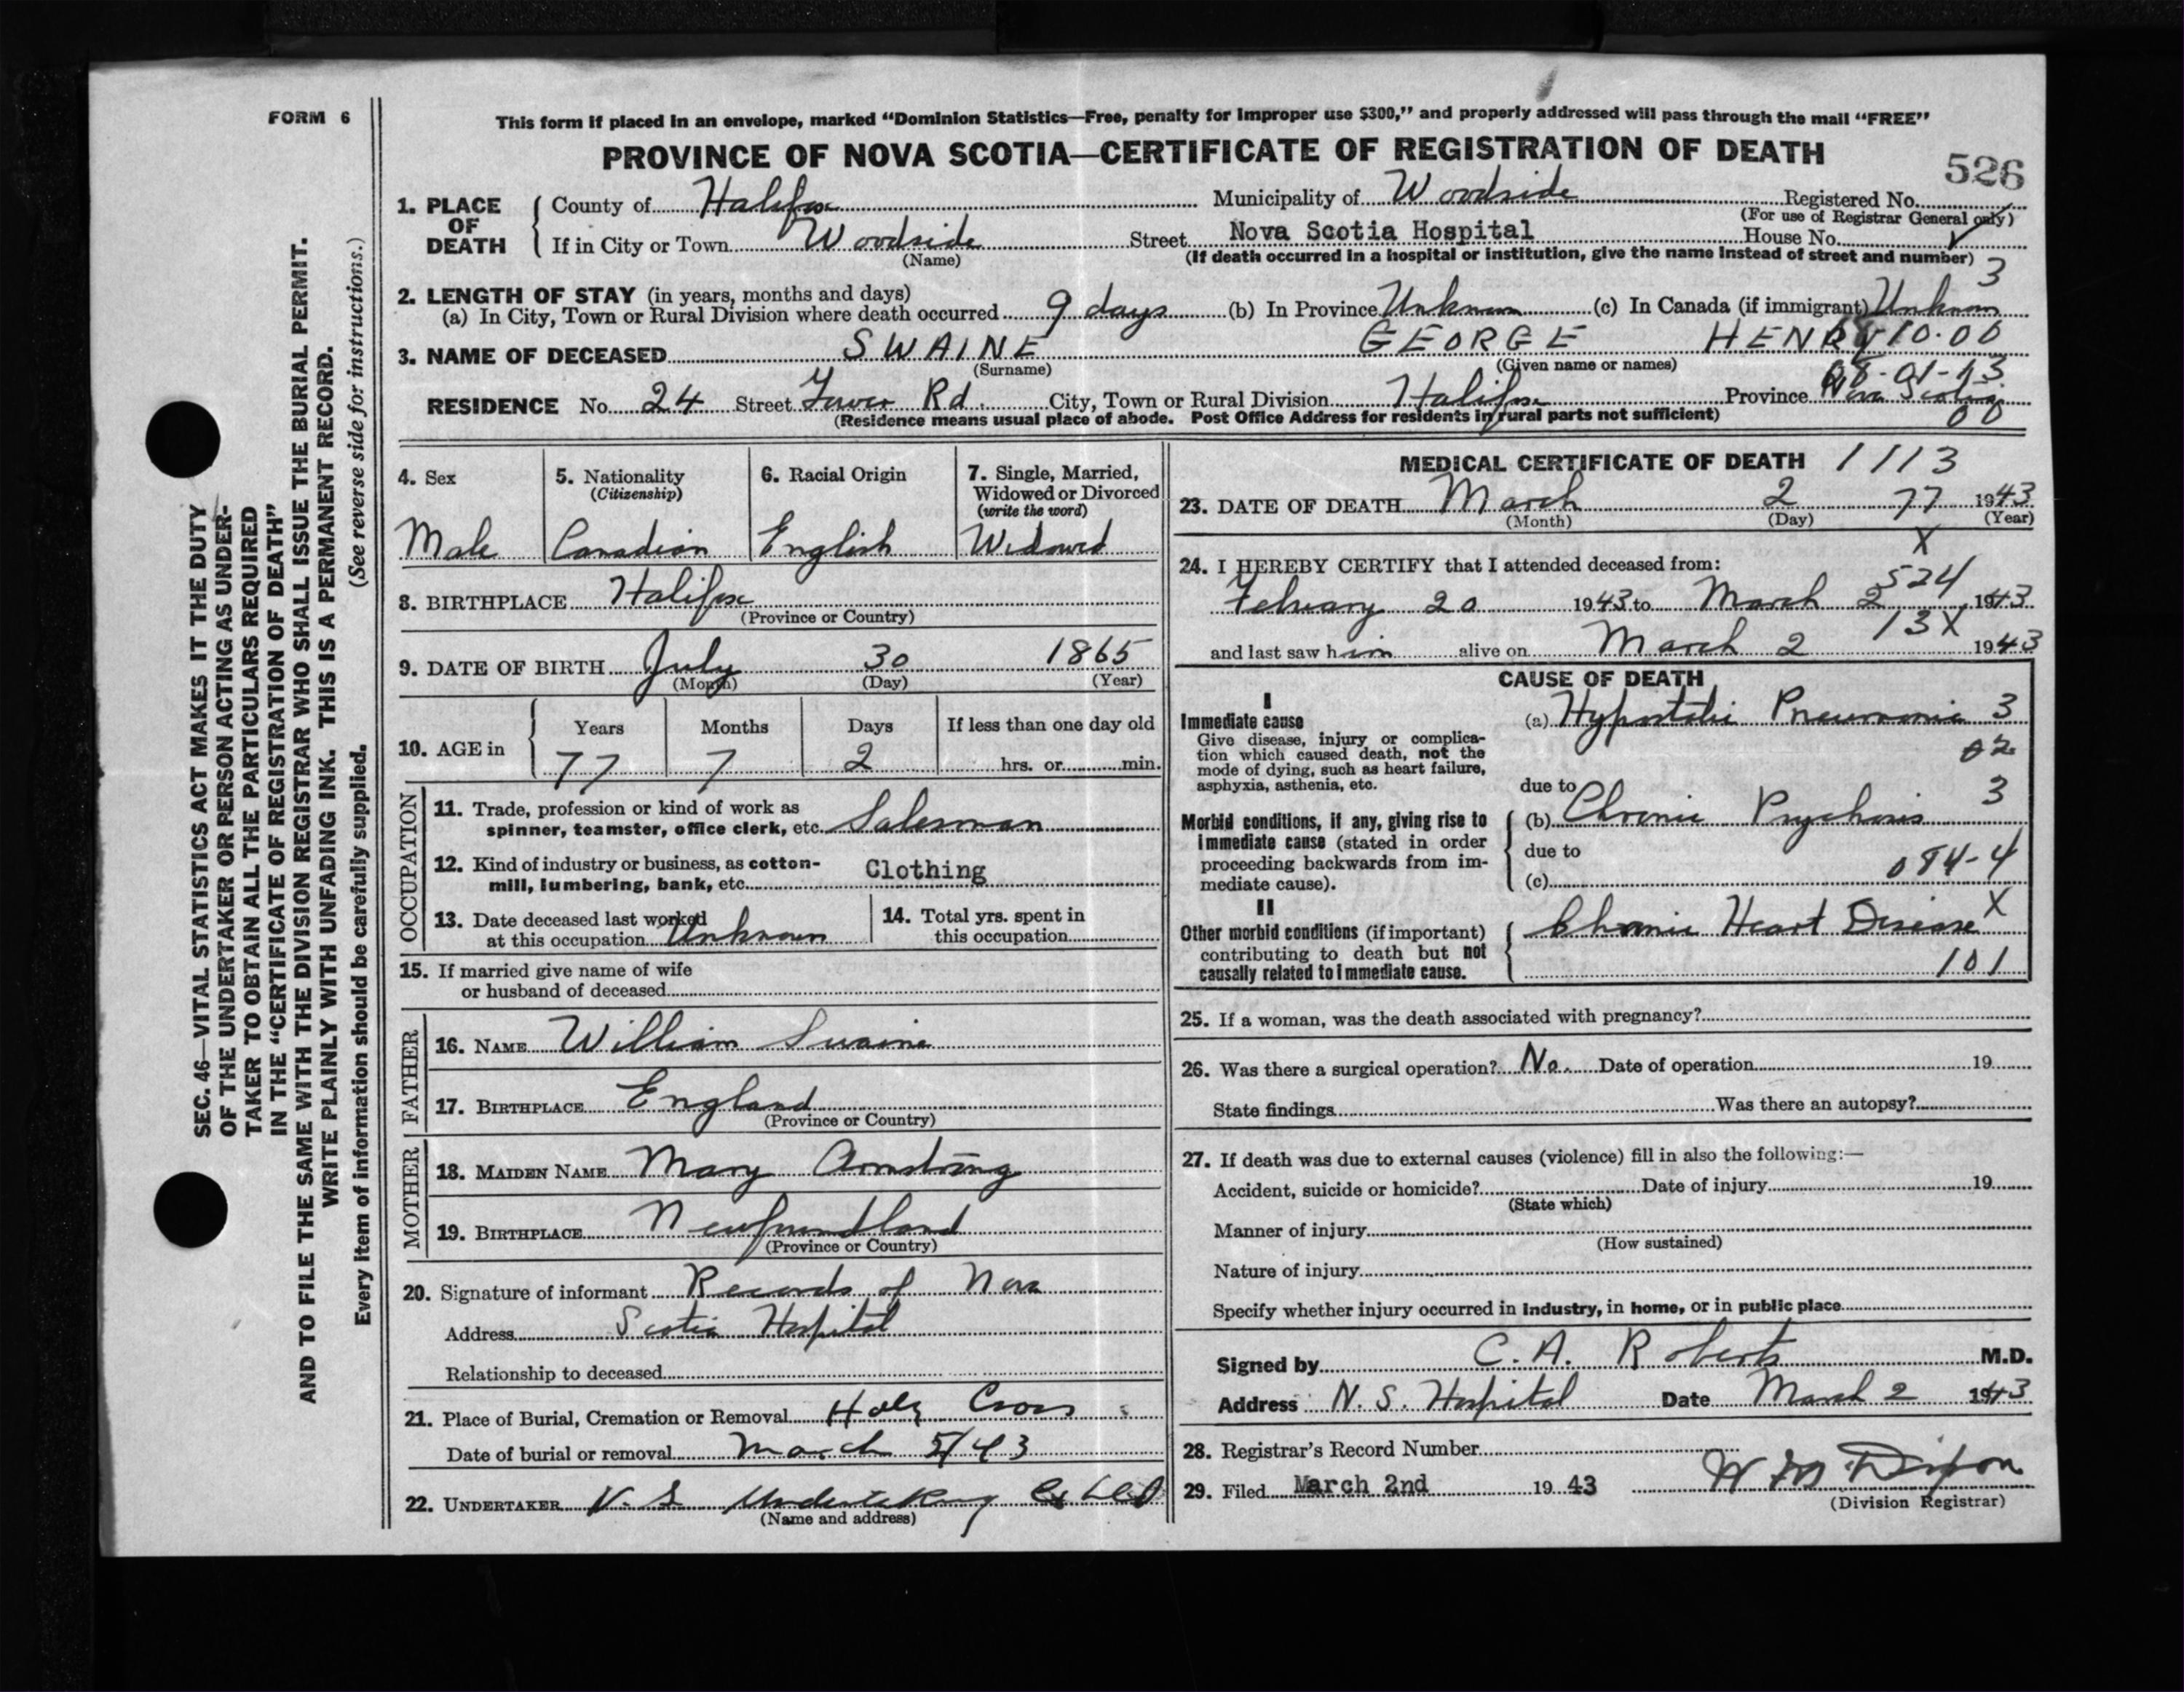 FORM 6
This form if placed in an envelope, marked “Dominion Statistics—Free, penalty for improper use $300,” and properly addressed will pass through the mail “FREE”
PROVINCE OF NOVA SCOTIA—CERTIFICATE OF REGISTRATION OF DEATH
526
1. PLACE OF DEATH
County of Halifax Municipality of Woodside Registered No.
(For use of Registrar General only)
If in City or Town Woodside Street Nova Scotia Hospital House No.
(Name) (If death occurred in a hospital or institution, give the name instead of street and number)
3
2. LENGTH OF STAY (in years, months and days)
(a) In City, Town or Rural Division where death occurred 9 days (b) In Province Unknown (c) In Canada (if immigrant) Unknown
3. NAME OF DECEASED SWAINE GEORGE HENRY 10.00
(Surname) (Given name or names)
RESIDENCE No. 24 Street Tower Rd. City, Town or Rural Division Halifax Province Nova Scotia
(Residence means usual place of abode. Post Office Address for residents in rural parts not sufficient) 00
4. Sex
Male
5. Nationality
(Citizenship)
Canadian
6. Racial Origin
English
7. Single, Married,
Widowed or Divorced
(write the word)
Widowed
8. BIRTHPLACE Halifax
(Province or Country)
9. DATE OF BIRTH July 30 1865
(Month) (Day) (Year)
10. AGE in
Years Months Days If less than one day old
77 7 2 hrs. or min.
OCCUPATION
11. Trade, profession or kind of work as
spinner, teamster, office clerk, etc. Salesman
12. Kind of industry or business, as cotton-
mill, lumbering, bank, etc. Clothing
13. Date deceased last worked
at this occupation Unknown
14. Total yrs. spent in
this occupation
15. If married give name of wife
or husband of deceased
FATHER
16. NAME William Swaine
17. BIRTHPLACE England
(Province or Country)
MOTHER
18. MAIDEN NAME Mary Armstrong
19. BIRTHPLACE Newfoundland
(Province or Country)
20. Signature of informant Records of Nova
Address Scotia Hospital
Relationship to deceased
21. Place of Burial, Cremation or Removal Holy Cross
Date of burial or removal March 5/43
22. UNDERTAKER Undertaking
(Name and address)
MEDICAL CERTIFICATE OF DEATH 1113
23. DATE OF DEATH March 2 77 1943
(Month) (Day) (Year)
X
24. I HEREBY CERTIFY that I attended deceased from:
524
February 20 1943 to March 2 1943
13X
and last saw him alive on March 2 1943
CAUSE OF DEATH
I
Immediate cause
Give disease, injury or complica-
tion which caused death, not the
mode of dying, such as heart failure,
asphyxia, asthenia, etc.
(a) Hypostatic Pneumonia 3
02
due to
Morbid conditions, if any, giving rise to
immediate cause (stated in order
proceeding backwards from im-
mediate cause).
(b) Chronic Psychosis 3
due to
(c) 084-4
II
Other morbid conditions (if important)
contributing to death but not
causally related to immediate cause.
Chronic Heart Disease X
101
25. If a woman, was the death associated with pregnancy?
26. Was there a surgical operation? No. Date of operation 19
State findings Was there an autopsy?
27. If death was due to external causes (violence) fill in also the following:—
Accident, suicide or homicide? Date of injury 19
(State which)
Manner of injury
(How sustained)
Nature of injury
Specify whether injury occurred in industry, in home, or in public place
Signed by C. A. Roberts M.D.
Address N. S. Hospital Date March 2 1943
28. Registrar’s Record Number
29. Filed March 2nd 1943 W M Dixon
(Division Registrar)
SEC. 46—VITAL STATISTICS ACT MAKES IT THE DUTY
OF THE UNDERTAKER OR PERSON ACTING AS UNDER-
TAKER TO OBTAIN ALL THE PARTICULARS REQUIRED
IN THE “CERTIFICATE OF REGISTRATION OF DEATH”
AND TO FILE THE SAME WITH THE DIVISION REGISTRAR WHO SHALL ISSUE THE BURIAL PERMIT.
WRITE PLAINLY WITH UNFADING INK. THIS IS A PERMANENT RECORD.
Every item of information should be carefully supplied. (See reverse side for instructions.)